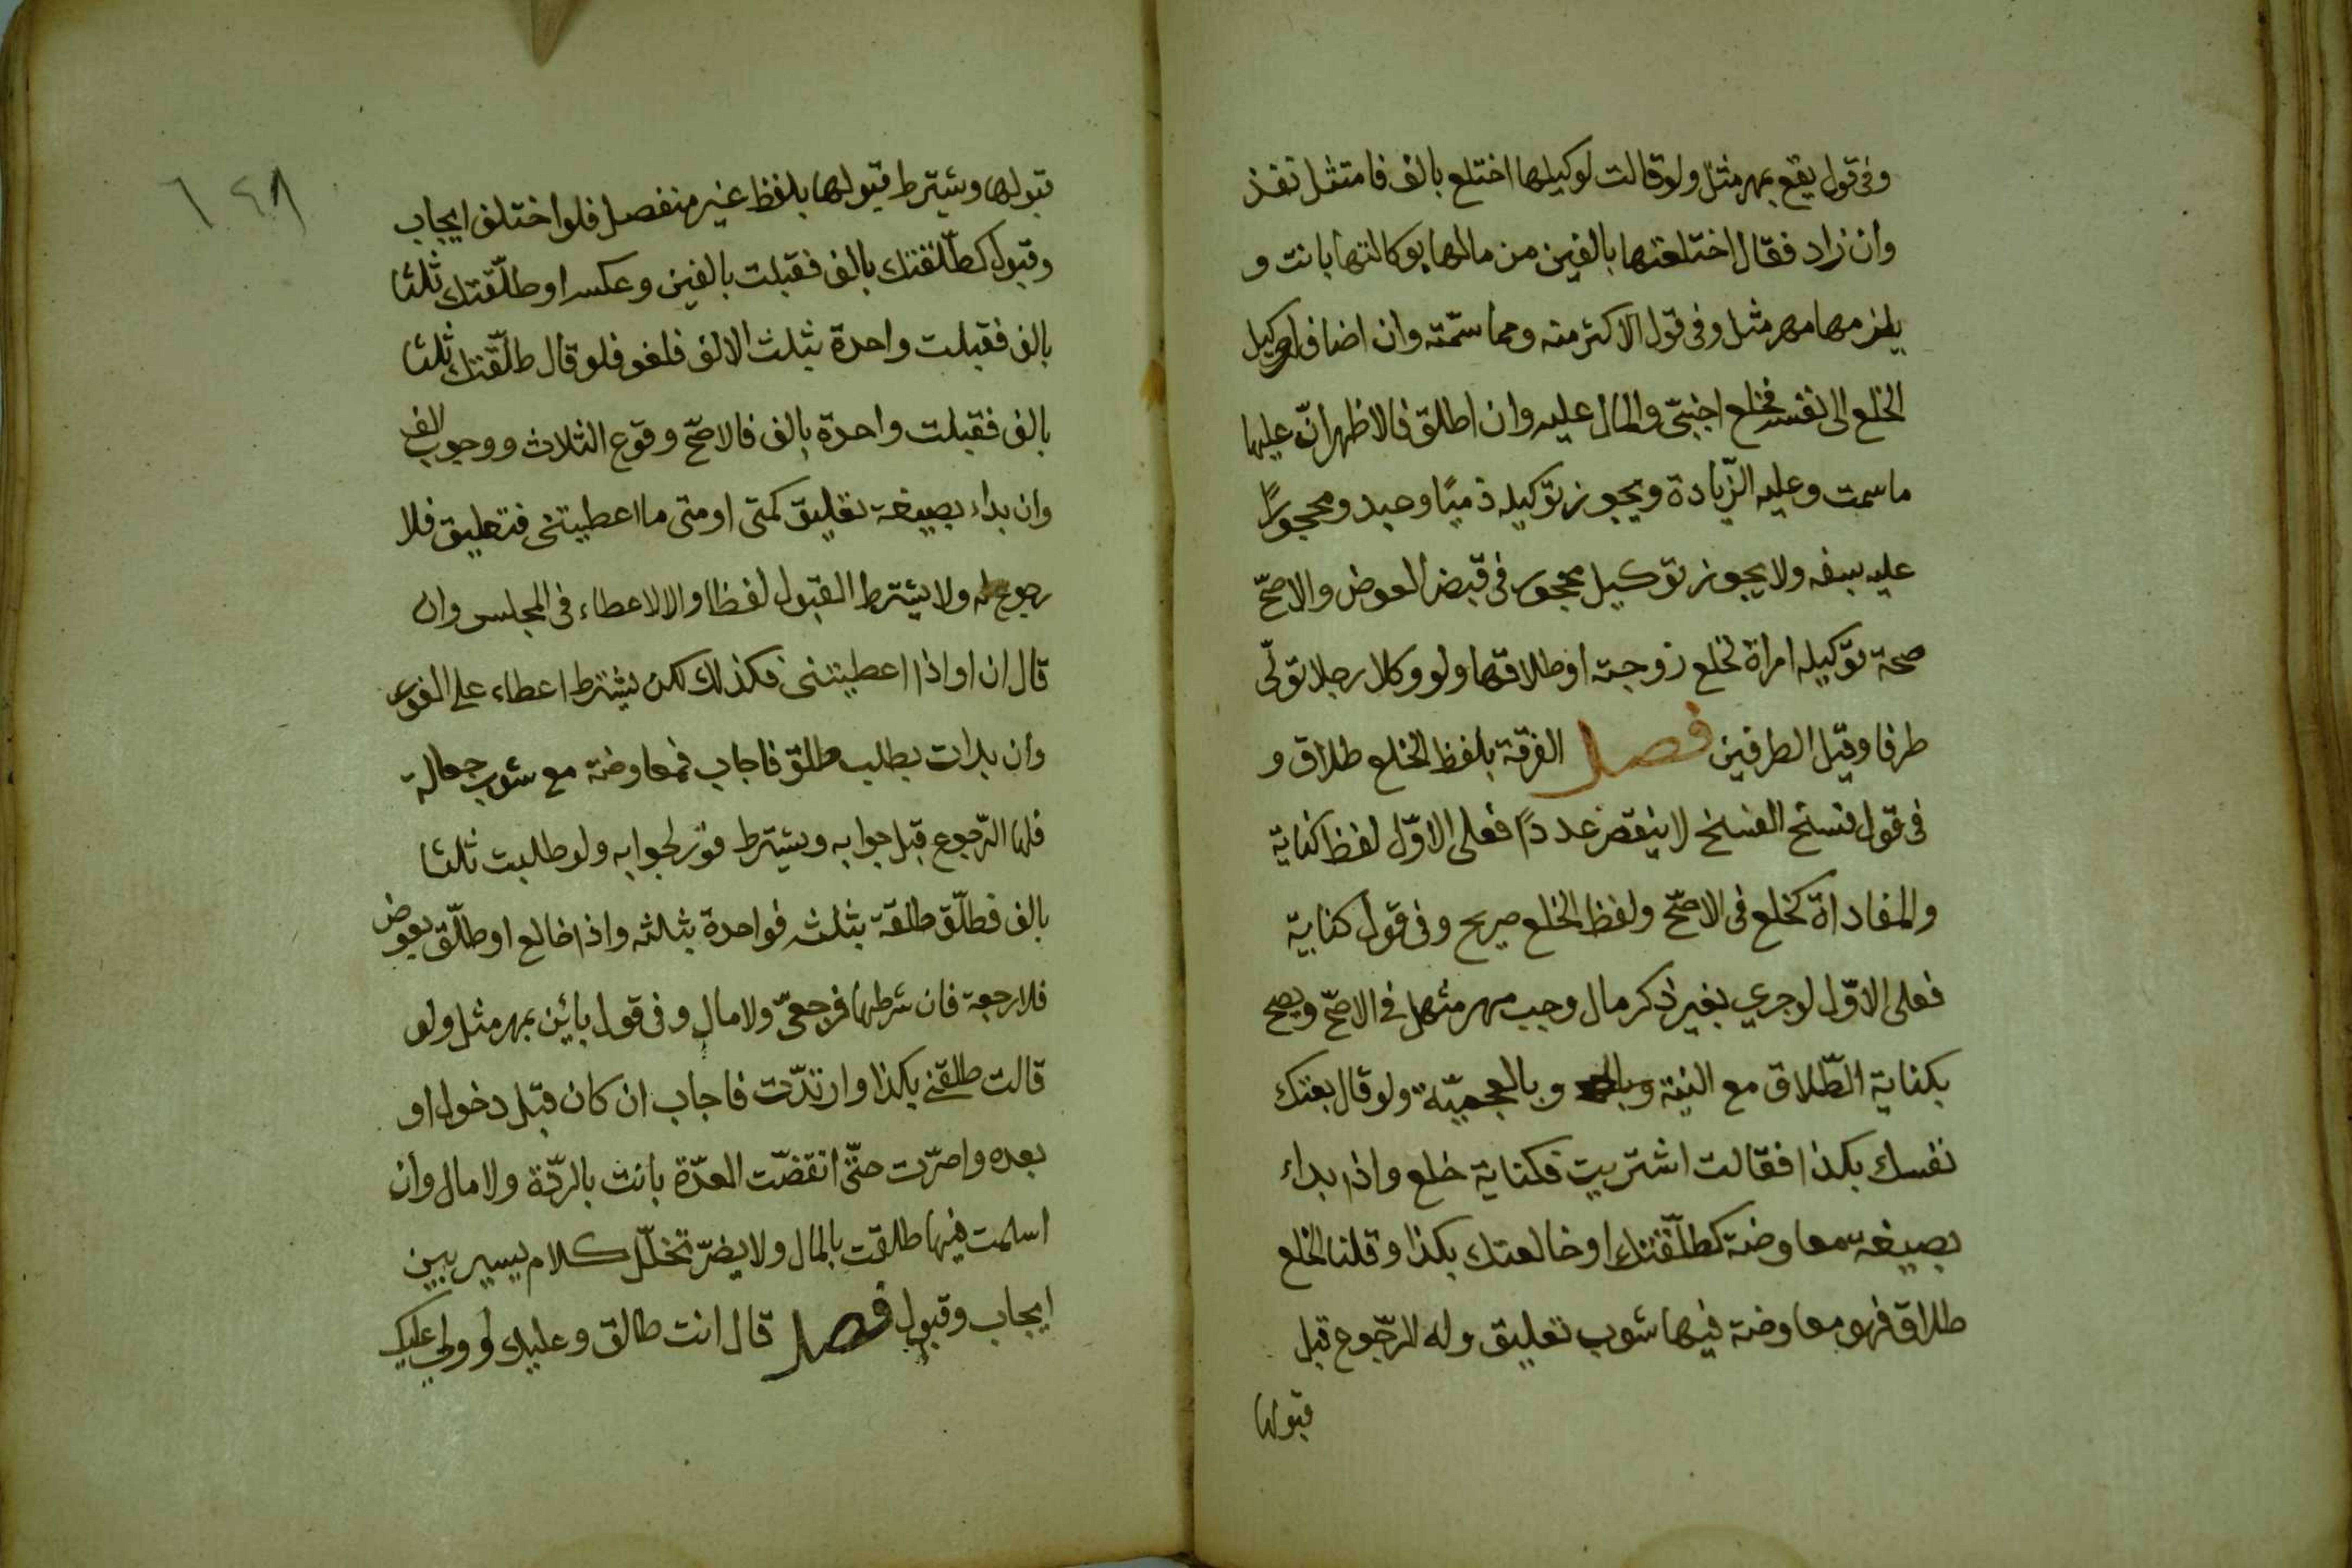 وفى قول يقع بمهر مثل ولو قالت لوكيلها اختلع بالف فامتثل نفذ
وان زاد فقال اختلعتها بالفين من مالها بوكالتها بانت و
يلزمها مهر مثل وفى قول الاكثر منه ومما سمّته وان اضاف الوكيل
الخلع الى نفسه فخلع اجنبىّ والمال عليه وان اطلق فالاظهر انّ عليها
ما سمت وعليه الزّيادة ويجوز توكيله ذميًا وعبد ومحجورًا
عليه بسفه ولا يجوز توكيل محجور فى قبض العوض والاصحّ
صحة توكيله امراة لخلع زوجته او طلاقها ولو وكلا رجلا تولّى
طرفا وقيل الطرفين فصل الفرقة بلفظ الخلع طلاق و
فى قول فسخ الفسخ لا ينقص عددًا فعلى الاوّل لفظ كناية
والمفاداة كخلع فى الاصحّ ولفظ الخلع صريح وفى قول كناية
فعلى الاوّل لو جرى بغير ذكر مال وجب مهر مثل فى الاصحّ ويصح
بكناية الطّلاق مع النية وبالعجميّة ولو قال بعتك
نفسك بكذا فقالت اشتريت فكناية خلع واذا بداء
بصيغة معاوضة كطلّقتك او خالعتك بكذا وقلنا الخلع
طلاق فهو معاوضة فيها شوب تعليق وله الرّجوع قبل
قبولها
قبولها ويشترط قبولها بلفظ غير منفصل فلو اختلف ايجاب
وقبول كطلّقتك بالف فقبلت بالفين وعكسه او طلّقتك ثلثا
بالف فقبلت واحدة بثلث الالف فلغو فلو قال طلّقتك ثلثا
بالف فقبلت واحدة بالف فالاصحّ وقوع الثلاث ووجوب الف
وان بداء بصيغة تعليق كمتى او متى ما اعطيتنى فتعليق فلا
رجوع له ولا يشترط القبول لفظا ولا الاعطاء فى المجلس وان
قال ان او اذا اعطيتنى فكذلك لكن يشترط اعطاء على الفور
وان بدات بطلب طلاق فاجاب فمعاوضة مع شوب جعالة
فلها الرّجوع قبل جوابه ويشترط فور لجوابه ولو طلبت ثلثا
بالف فطلّق طلقة بثلثه فواحدة بثلثه واذا خالع او طلّق بعوض
فلا رجعة فان شرطها فرجعىّ ولا مال وفى قول بائن بمهر مثل ولو
قالت طلقنى بكذا وارتدّت فاجاب ان كان قبل دخول او
بعده واصرّت حتّى انقضّت العدّة بانت بالردّة ولا مال وان
اسلمت فيها طلقت بالمال ولا يضرّ تخلّل كلام يسير بين
ايجاب وقبول فصل قال انت طالق وعليك او ولى عليك
١٤٨